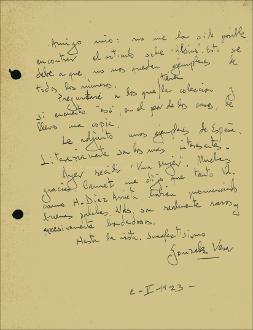 Amigo mío: no me ha sido posible
encontrar el artículo sobre. Esto se
debe a que no nos quedan ejemplares de
todos los números.
Preguntaré a los que la coleccionan y
si encuentro "eso", en el peor de los casos, le
llevo una copia.
Le adjunto unos ejemplares de España.
Literariamente son los más interesantes.
Ayer recibí "Una mujer". Muchas
gracias. me dijo que tanto Vd.
como A. Díez habían pronunciado
buenas palabras. Vds. son realmente raros y
excesivamente bondadosos.
Hasta la vista.
González
2-II-1923-